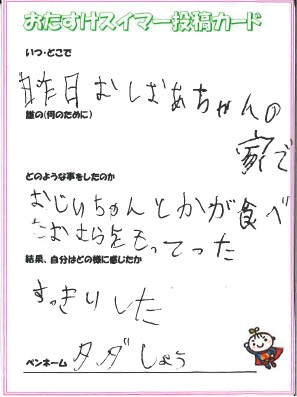 おたすけスイマー投稿カード
いつ・どこで
昨日おじばあちゃんの
家で
誰の(何のために)
どのような事をしたのか
おじいちゃんとかが食べ
たおさらをもってった
結果、自分はどの様に感じたか
すっきりした
ペンネーム タダしょう